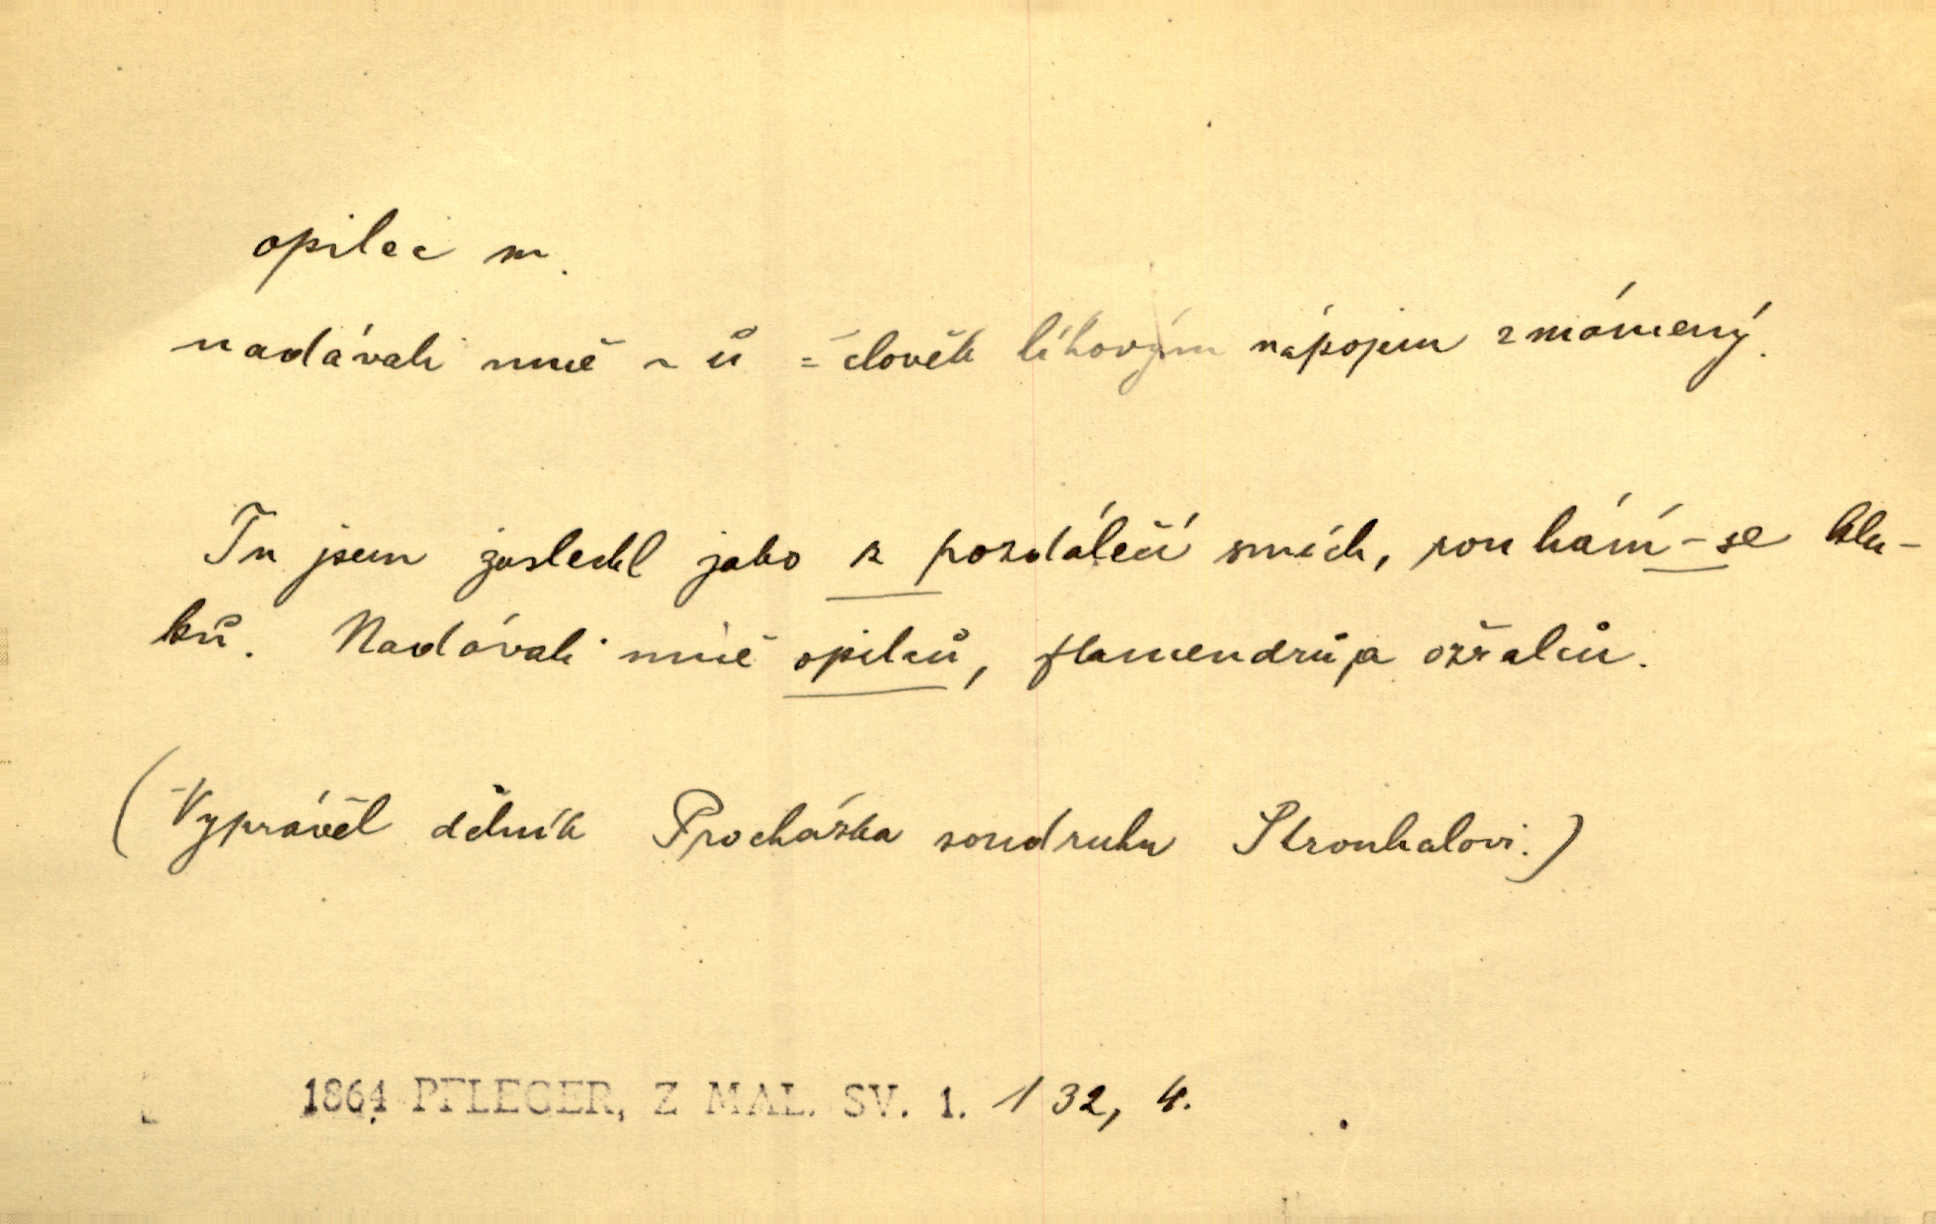 opilec m.
nadávali mně ~ů = člověk líhovým nápojem zmámený.
Tu jsem zaslechl jako z pozdálečí smích, rouhání-se klu-
ků. Nadávali mně opilců, flamendrů a ožralců.
(Vyprávěl dělník Procházka soudruhu Strouhalovi.)
1864 PFLEGER, Z MAL. SV. 1. 132, 4.